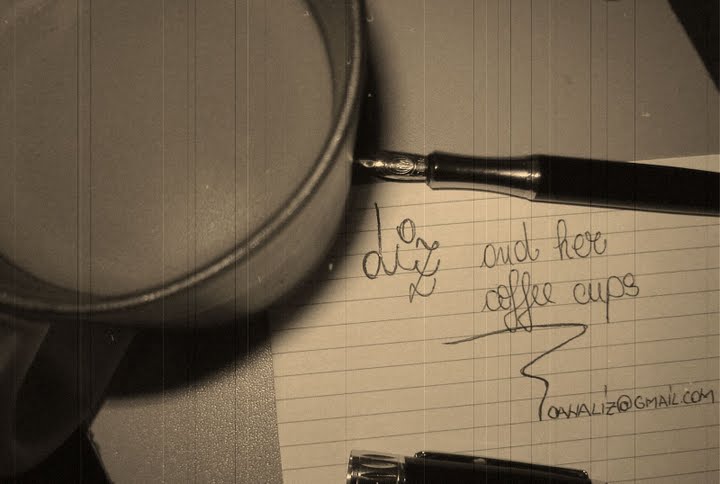 diz and her
coffee cups
OANALIZ@GMAIL.COM